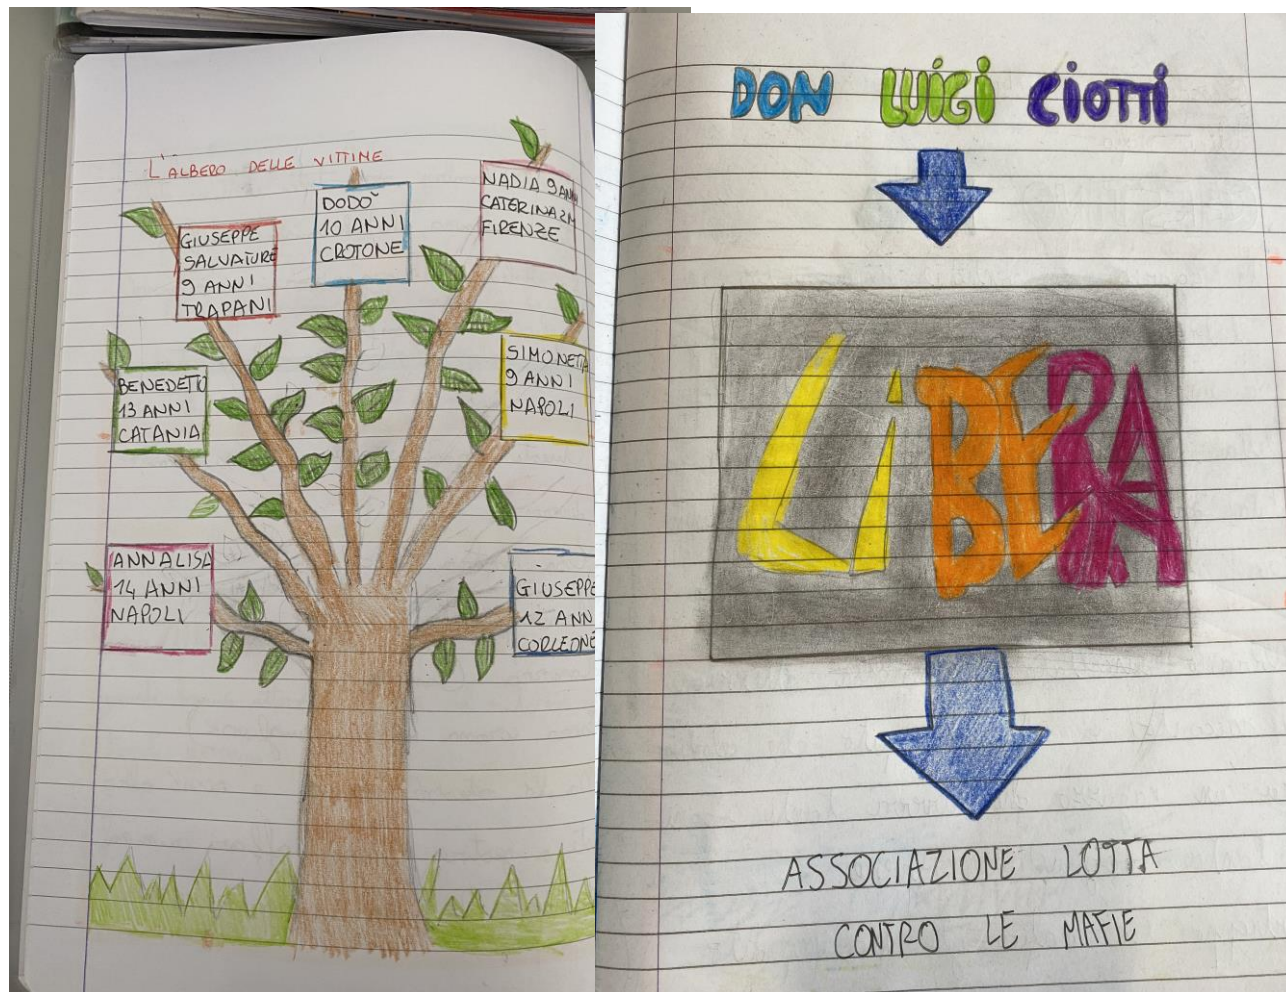 L'ALBERO DELLE VITTIME
GIUSEPPE
SALVATORE
9 ANNI
TRAPANI
DODÒ
10 ANNI
CROTONE
NADIA 9 ANNI
CATERINA
FIRENZE
BENEDETTO
13 ANNI
CATANIA
SIMONETTA
9 ANNI
NAPOLI
ANNALISA
14 ANNI
NAPOLI
GIUSEPPE
12 ANN
CORLEONE
DON LUIGI CIOTTI
LiBERA
ASSOCIAZIONE LOTTA
CONTRO LE MAFIE